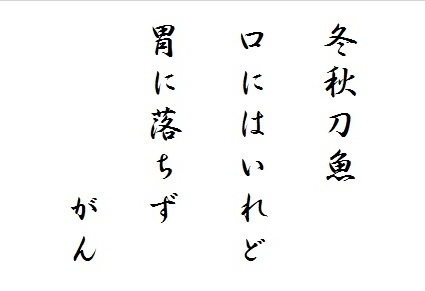 冬秋刀魚
口にはいれど
胃に落ちず
がん